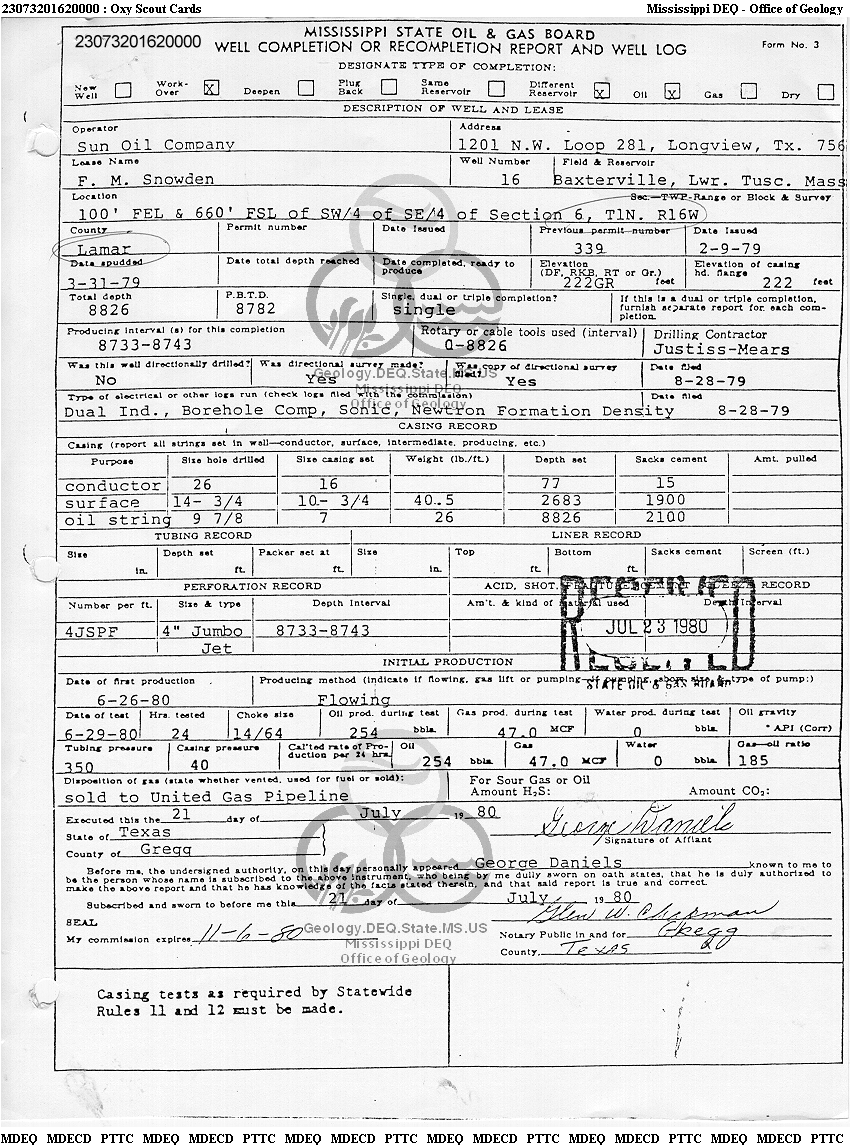 23073201620000 : Oxy Scout Cards Mississippi DEQ - Office of Geology
MISSISSIPPI STATE OIL & GAS BOARD
23073201620000 WELL COMPLETION OR RECOMPLETION REPORT AND WELL LOG Form No. 3
DESIGNATE TYPE OF COMPLETION:
New Well Work-Over X Deepen Plug Back Same Reservoir Different Reservoir X Oil X Gas Dry
DESCRIPTION OF WELL AND LEASE
Operator Address
Sun Oil Company 1201 N.W. Loop 281, Longview, Tx. 756
Lease Name Well Number Field & Reservoir
F. M. Snowden 16 Baxterville, Lwr. Tusc. Mass
Location Sec.—TWP-Range or Block & Survey
100' FEL & 660' FSL of SW/4 of SE/4 of Section 6, T1N. R16W
County Permit number Date Issued Previous permit number Date Issued
Lamar 339 2-9-79
Date spudded Date total depth reached Date completed, ready to produce Elevation (DF, RKB, RT or Gr.) Elevation of casing hd. flange
3-31-79 222GR feet 222 feet
Total depth P.B.T.D. Single, dual or triple completion? If this is a dual or triple completion, furnish separate report for each completion.
8826 8782 single
Producing interval (s) for this completion Rotary or cable tools used (interval) Drilling Contractor
8733-8743 0-8826 Justiss-Mears
Was this well directionally drilled? Was directional survey made? Was copy of directional survey filed? Date filed
No Yes Yes 8-28-79
Geology.DEQ.State.MS.US
Mississippi DEQ
Office of Geology
Type of electrical or other logs run (check logs filed with the commission) Date filed
Dual Ind., Borehole Comp, Sonic, Newtron Formation Density 8-28-79
CASING RECORD
Casing (report all strings set in well—conductor, surface, intermediate, producing, etc.)
Purpose Size hole drilled Size casing set Weight (lb./ft.) Depth set Sacks cement Amt. pulled
conductor 26 16 77 15
surface 14- 3/4 10- 3/4 40.5 2683 1900
oil string 9 7/8 7 26 8826 2100
TUBING RECORD LINER RECORD
Size Depth set Packer set at Size Top Bottom Sacks cement Screen (ft.)
in. ft. ft. in. ft. ft.
PERFORATION RECORD ACID, SHOT, RECORD
Number per ft. Size & type Depth Interval Am't. & kind of material used Depth Interval
4JSPF 4" Jumbo Jet 8733-8743
RECEIVED
JUL 23 1980
STATE OIL & GAS BOARD
INITIAL PRODUCTION
Date of first production Producing method (indicate if flowing, gas lift or pumping—if pumping, show size & type of pump:)
6-26-80 Flowing
Date of test Hrs. tested Choke size Oil prod. during test Gas prod. during test Water prod. during test Oil gravity
6-29-80 24 14/64 254 bbls. 47.0 MCF 0 bbls. ° API (Corr)
Tubing pressure Casing pressure Cal'ted rate of Production per 24 hrs. Oil Gas Water Gas—oil ratio
350 40 254 bbls. 47.0 MCF 0 bbls. 185
Disposition of gas (state whether vented, used for fuel or sold): For Sour Gas or Oil
sold to United Gas Pipeline Amount H₂S: Amount CO₂:
Executed this the 21 day of July 19 80
State of Texas George Daniels
County of Gregg Signature of Affiant
Before me, the undersigned authority, on this day personally appeared George Daniels known to me to
be the person whose name is subscribed to the above instrument, who being by me dully sworn on oath states, that he is duly authorized to
make the above report and that he has knowledge of the facts stated therein, and that said report is true and correct.
Subscribed and sworn to before me this 21 day of July, 19 80
SEAL Glen W. Chapman
My commission expires 11-6-80 Notary Public in and for Gregg
County, Texas
Geology.DEQ.State.MS.US
Mississippi DEQ
Office of Geology
Casing tests as required by Statewide
Rules 11 and 12 must be made.
MDEQ MDECD PTTC MDEQ MDECD PTTC MDEQ MDECD PTTC MDEQ MDECD PTTC MDEQ MDECD PTTC MDEQ MDECD PTTC